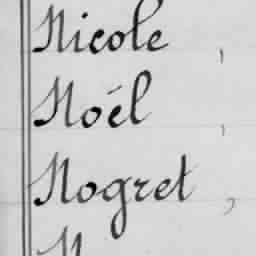 Nicole ,
Noél ,
Nogret ,